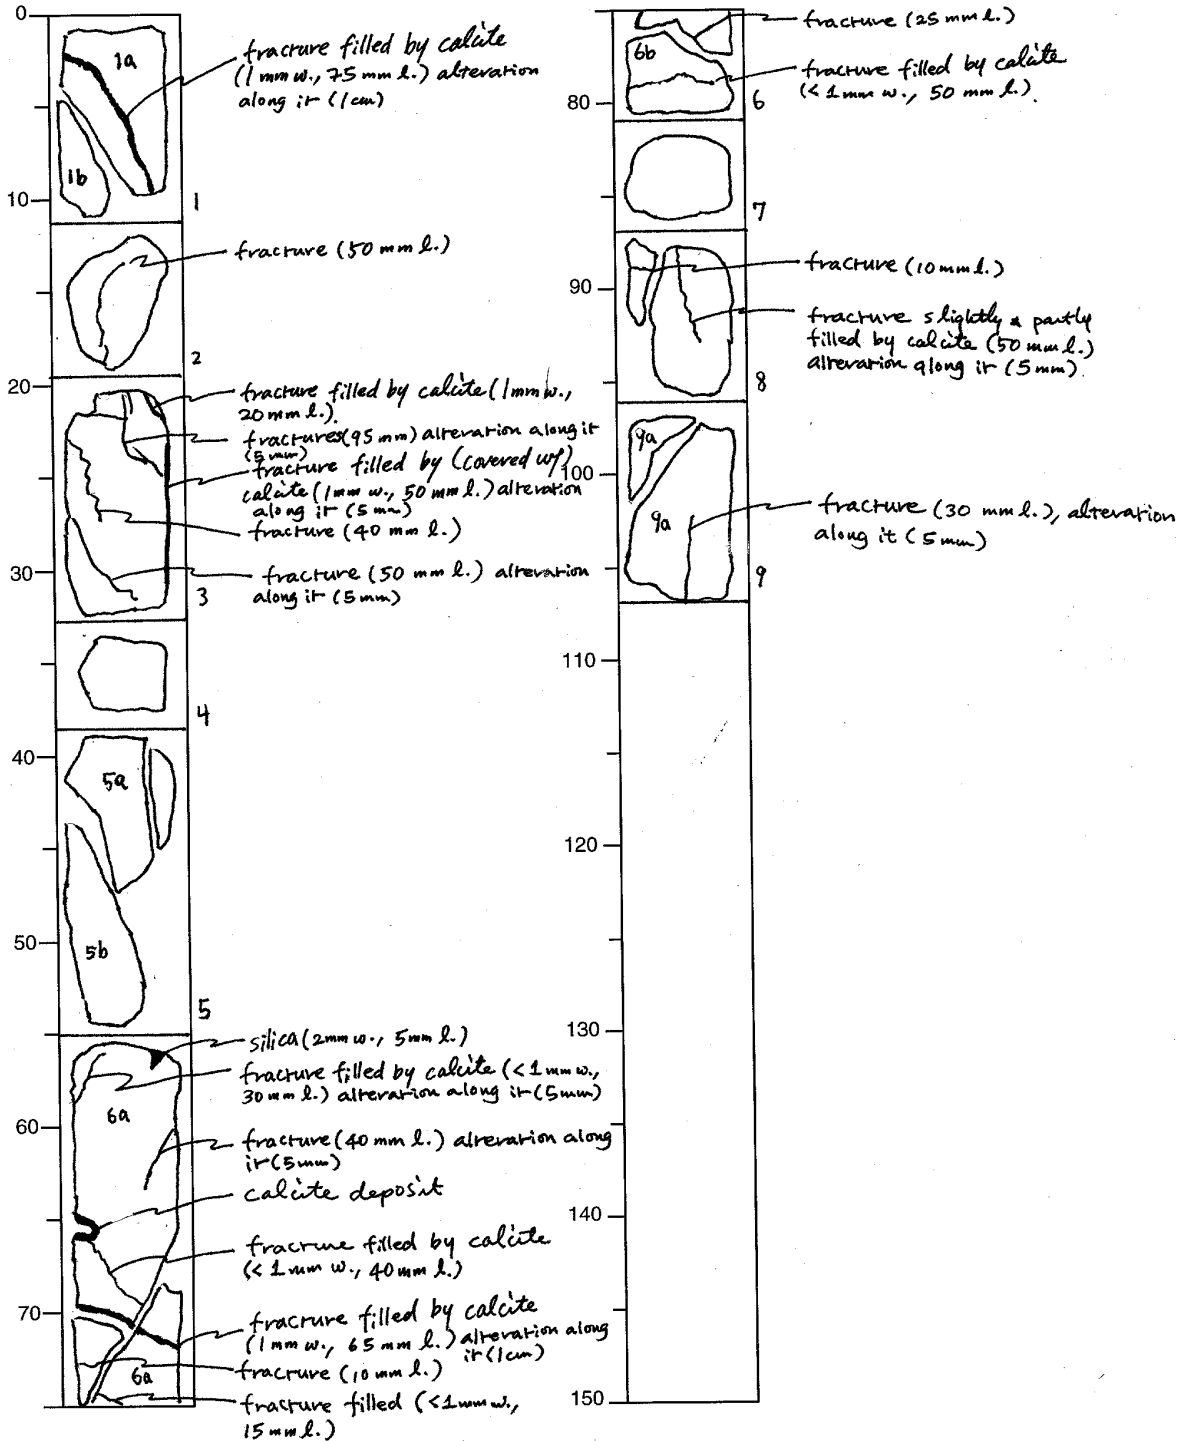 0
1a
fracture filled by calcite
(1mm w., 75 mm l.) alteration
along it (1cm)
1b
10
1
fracture (50 mm l.)
2
20
fracture filled by calcite (1mm w.,
20 mm l.).
fractures(95 mm) alteration along it
(5mm)
fracture filled by (covered w/)
calcite (1mm w., 50 mm l.) alteration
along it (5mm)
fracture (40 mm l.)
30
fracture (50 mm l.) alteration
along it (5mm)
3
4
40
5a
50
5b
5
silica (2mm w., 5mm l.)
fracture filled by calcite (<1mm w.,
30 mm l.) alteration along it (5mm)
6a
60
fracture (40 mm l.) alteration along
it (5mm)
calcite deposit
fracture filled by calcite
(<1mm w., 40mm l.)
70
fracture filled by calcite
(1mm w., 65 mm l.) alteration along
it (1cm)
fracture (10 mm l.)
6a
fracture filled (<1mm w.,
15 mm l.)
fracture (25 mm l.)
6b
fracture filled by calcite
(<1mm w., 50 mm l.).
80
6
7
fracture (10mm l.)
90
fracture slightly & partly
filled by calcite (50 mm l.)
alteration along it (5mm)
8
9a
100
9a
fracture (30 mm l.), alteration
along it (5mm)
9
110
120
130
140
150